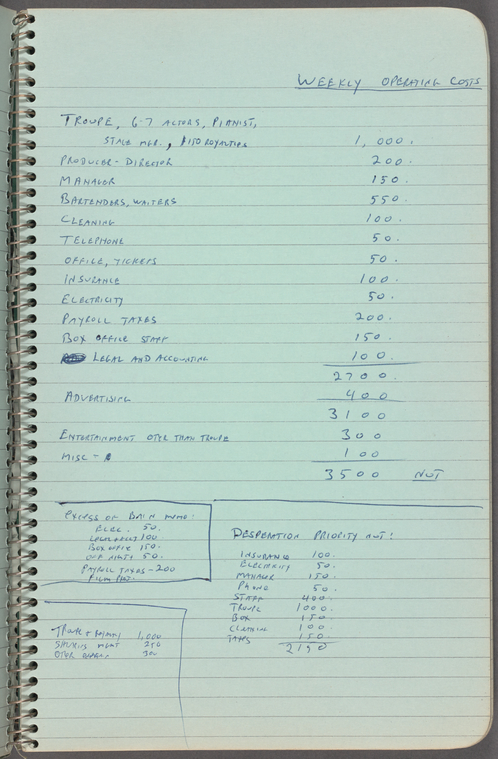 WEEKLY OPERATING COSTS
TROUPE, 6-7 ACTORS, PIANIST,
STAGE MGR., $150 ROYALTIES 1,000.
PRODUCER-DIRECTOR 200.
MANAGER 150.
BARTENDERS, WAITERS 550.
CLEANING 100.
TELEPHONE 50.
OFFICE, TICKETS 50.
INSURANCE 100.
ELECTRICITY 50.
PAYROLL TAXES 200.
BOX OFFICE STAFF 150.
LEGAL AND ACCOUNTING 100.
2700.
ADVERTISING 400
3100
ENTERTAINMENT OTER THAN TROUPE 300
MISC - 100
3500 NUT
EXCESS OF MEMO:
ELEC. 50.
100
BOX OFFICE 150.
50.
PAYROLL TAXES - 200
DESPERATION PRIORITY NUT:
INSURANCE 100.
ELECTRICITY 50.
MANAGER 150.
PHONE 50.
STAFF 400.
TROUPE 1000.
BOX 150.
CLEANING 100.
TAXES 150.
2150
TROUPE + 1,000
250
OTER 300